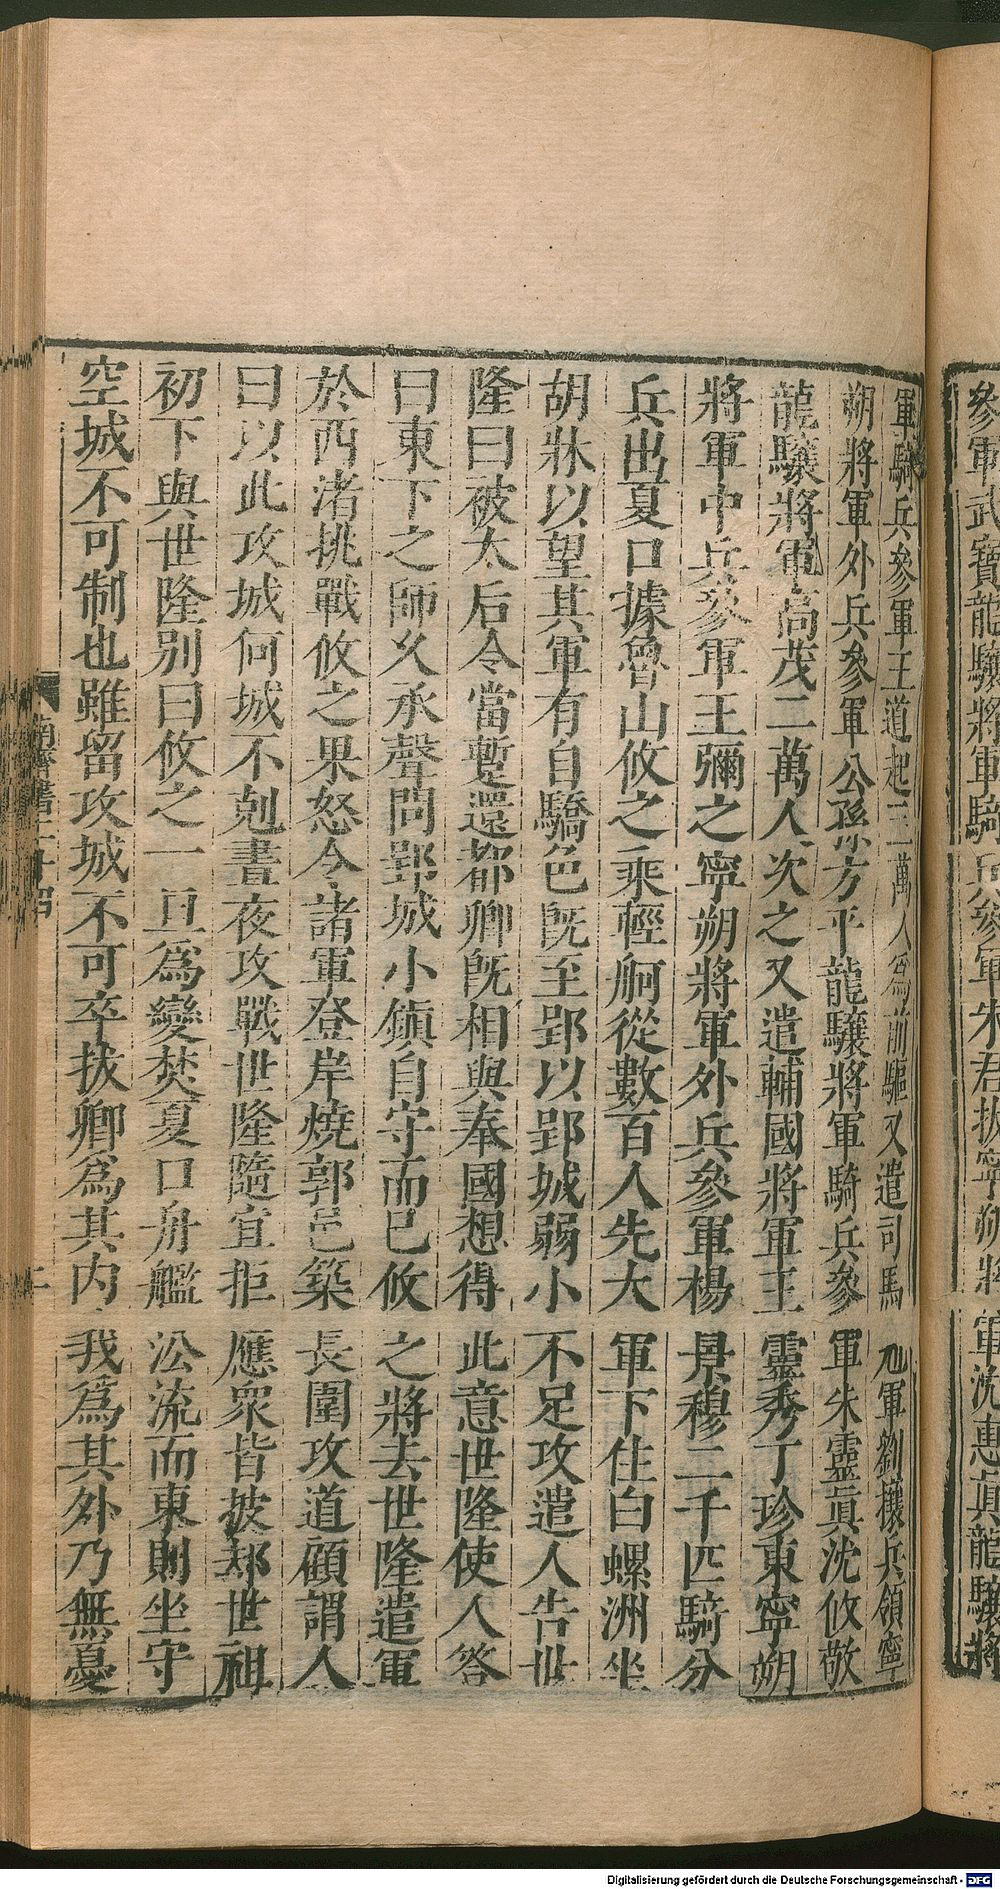 參軍武寶龍驤將軍騎兵參軍朱君拔寧朔將軍沈惠眞龍驤將
軍騎兵參軍王道起三萬人爲前驅又遣司馬冠軍劉攘兵領寧
朔將軍外兵參軍公孫方平龍驤將軍騎兵參軍朱靈眞沈攸敬
龍驤將軍高茂二萬人次之又遣輔國將軍王靈秀丁珍東寧朔
將軍中兵參軍王彌之寧朔將軍外兵參軍楊景穆二千匹騎分
兵出夏口據魯山攸之乘輕舸從數百人先大軍下住白螺洲坐
胡牀以望其軍有自驕色旣至郢以郢城弱小不足攻遣人告世
隆曰被太后令當蹔還都卿旣相與奉國想得此意世隆使人答
曰東下之師久承聲問郢城小鎮自守而已攸之將去世隆遣軍
於西渚挑戰攸之果怒令諸軍登岸燒郭邑築長圍攻道顧謂人
曰以此攻城何城不剋晝夜攻戰世隆隨宜拒應衆皆披却世祖
初下與世隆別曰攸之一旦爲變焚夏口舟艦沿流而東則坐守
空城不可制也雖留攻城不可卒拔卿爲其內我爲其外乃無憂
南齊書二十四
Digitalisierung gefördert durch die Deutsche Forschungsgemeinschaft - DFG